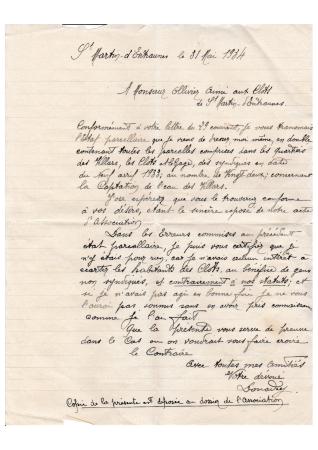 St Martin-d'Entraunes le 31 Mai 1934
A Monsieur Ollivier Aimé aux Clots
de St Martin d'Entraunes.
Conformément à votre lettre du 29 courant, je vous transmais
l'état parcellaire que je viens de dresser moi même, en double
contenant toutes les parcelles comprises dans les quartiers
des Villars, les Clots et Legge, des syndiqués en date
du neuf avril 1933, au nombre de vingt deux; concernant
la Captation de l'eau des Villars.
J'ose espérer que vous le trouverez conforme
à vos désirs, étant le sincère exposé de notre acte
d'Association.
Dans les Erreurs commises au précédent
état parcellaire, je puis vous certifier que je
n'y étais pour rien, car je n'avais aucun intérêt à
écarter les habitants des Clots, au bénéfice de gens
non syndiqués, et contrairement à nos statuts; et
si je n'avais pas agi en bonne foi je ne vous
l'aurai pas soumis sans en avoir pris connaissance
comme je l'ai fait
Que la présente vous serve de preuve
dans le Cas où on voudrait vous faire croire
le Contraire
avec toutes mes amitiés
Votre dévoué
Copie de la présente est déposée au dossier de l'Association